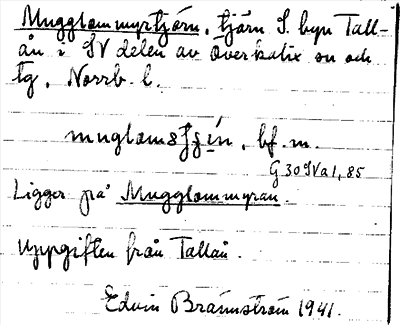 Mugglammyrtjärn, tjärn S. byn Tall-
ån i SV delen av Överkalix sn och
tg, Norrb. l.
bf. m.
G 30 SVa1, 85
Ligger på Mugglammyran.
Uppgiften från Tallån.
Edvin Brännström 1941.